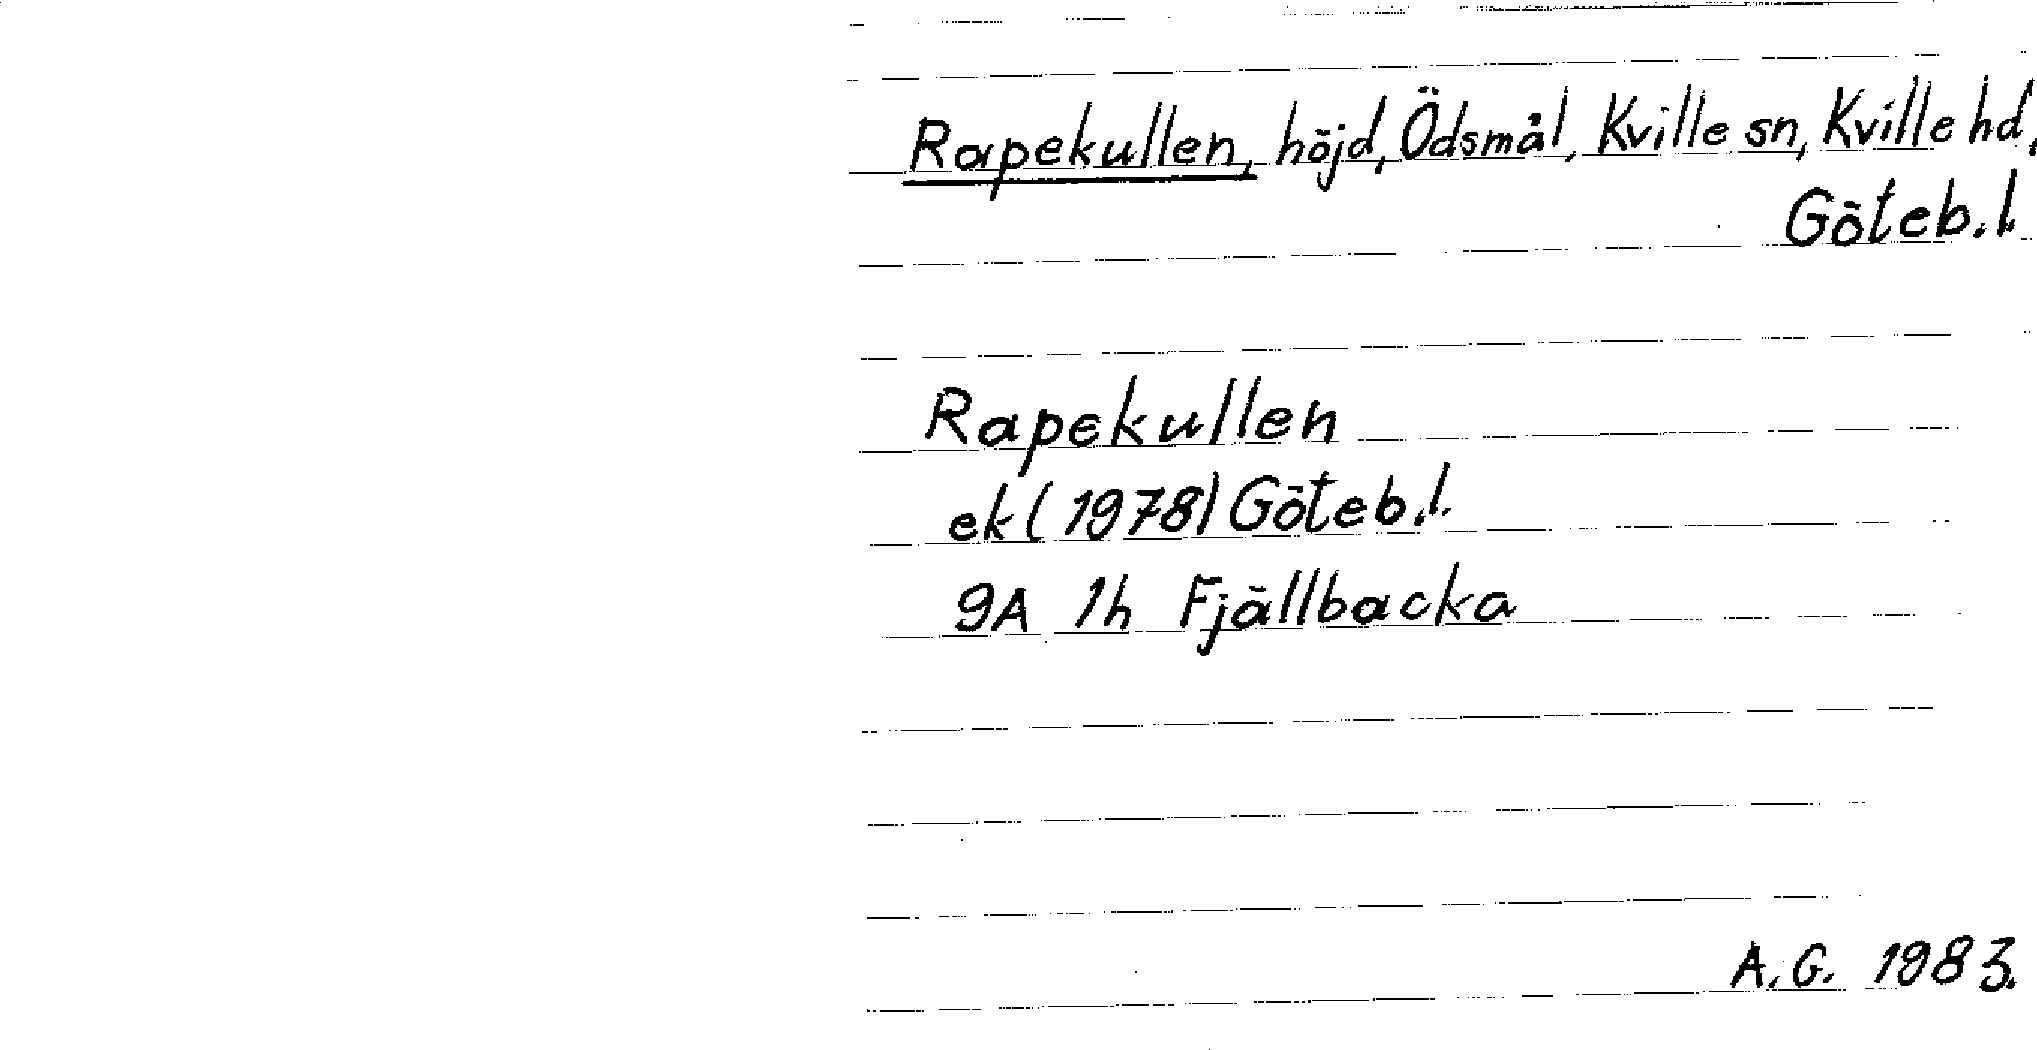 Rapekullen, höjd, Ödsmål, Kville sn, Kville hd,
Göteb.l.
Rapekullen
ek (1978) Göteb.l.
9A 1h Fjällbacka
A.G. 1983.